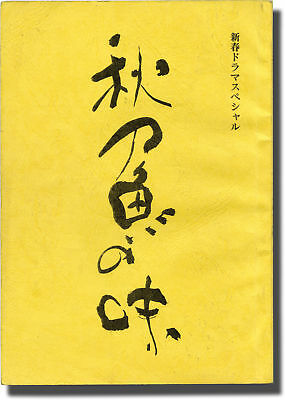 新春ドラマスペシャル
秋刀魚の味